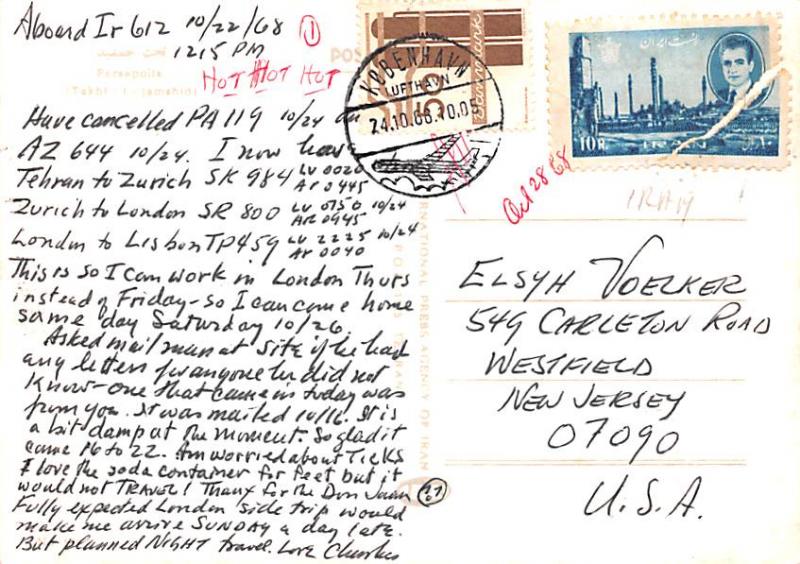 Aboard Ir 612 10/22/68 ①
1215 PM
HOT HOT HOT
Persepolis
(Takht-i-jamshid)
POS
Have cancelled PA 119 10/24 on
AZ 644 10/24. I now have
Tehran to Zurich SK 984 LV 0020
Ar 0445
Zurich to London SR 800 LV 0750 10/24
AR 0945
London to Lisbon TP 459 LV 2225 10/24
Ar 0040
This is so I can work in London Thurs
instead of Friday - so I can come home
same day Saturday 10/26.
Asked mail man at site if he had
any letters for anyone he did not
know - one that came in today was
from you. It was mailed 10/16. It is
a bit damp at the moment. So glad it
came 16 to 22. Am worried about TICKS
I love the soda container for feet but it
would not TRAVEL! Thanx for the Don Juan
Fully expected London side trip would
make me arrive SUNDAY a day late.
But planned NIGHT travel. Love Charles
27
KØBENHAVN
LUFTHAVN
24.10.68.10.05
Danmark
پست ایران
10R
IRAN
Oct 28 68
IRAN
INTERNATIONAL PRESS AGENCY OF IRAN
ELSYH VOELKER
549 CARLETON ROAD
WESTFIELD
NEW JERSEY
07090
U.S.A.